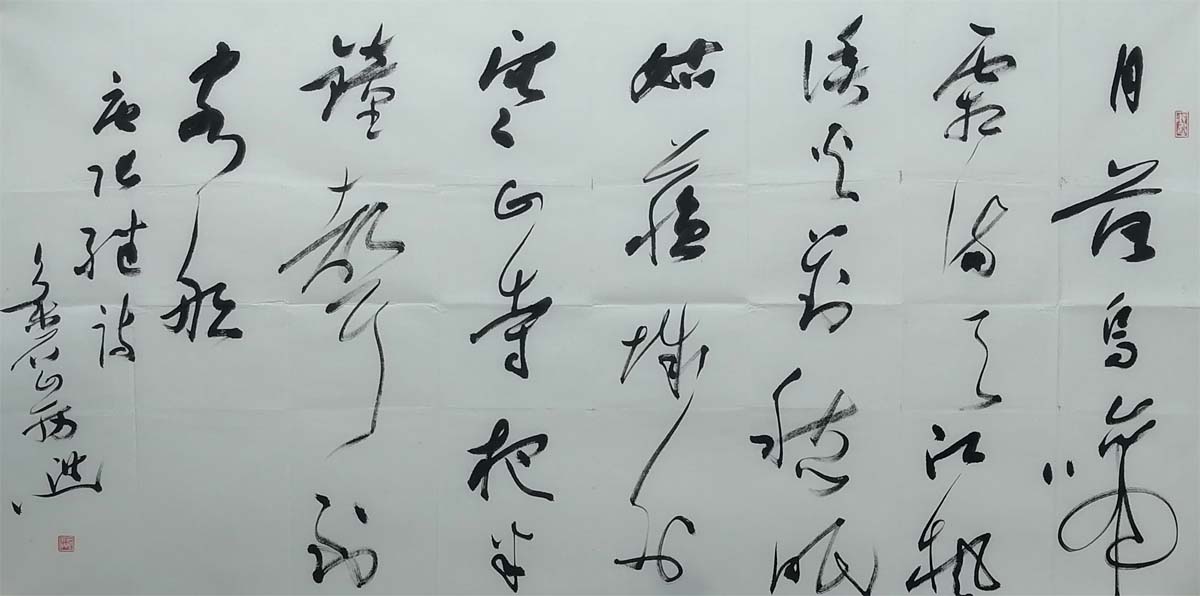 月落烏啼
霜满天江枫
渔火對愁眠
姑蘇城外
寒山寺夜半
鐘聲到
客船
唐张继诗